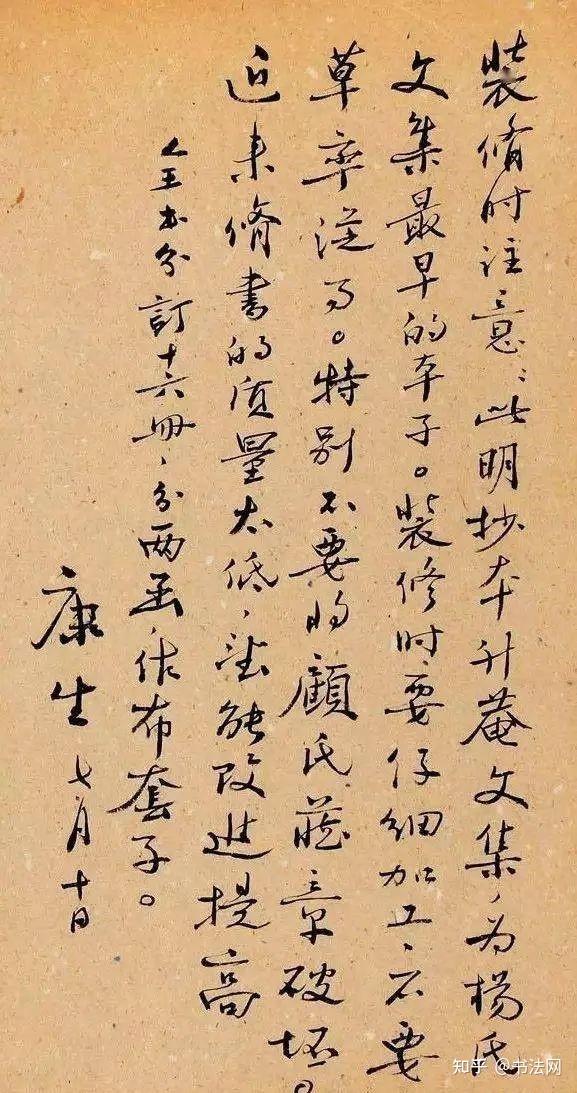 装脩时注意:此明抄本升菴文集,为杨氏
文集最早的本子。装修时要仔细加工、不要
草率从事。特别不要将顾氏藏章破坏。
近来脩书的质量太低,望能改进提高
全书分訂十六册,分两函,作布套子。
康生 七月十日
知乎 @书法网